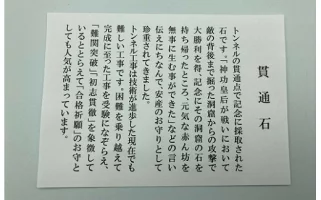 貫通石
トンネルの貫通点で記念に採取された
石です。「神功皇后が戦いにおいて
敵の背後まで掘った洞窟からの攻撃で
大勝利を得、記念にその洞窟の石を
持ち帰ったところ、元気な赤ん坊を
無事に生む事ができた」などの言い
伝えにちなんで、安産のお守りとして
珍重されてきました。
トンネル工事は技術が進歩した現在でも
難しい工事です。困難を乗り越えて
完成に至った工事を受験になぞらえ、
「難関突破」「初志貫徹」を象徴して
いるととらえて「合格祈願」のお守と
しても人気が高まっています。